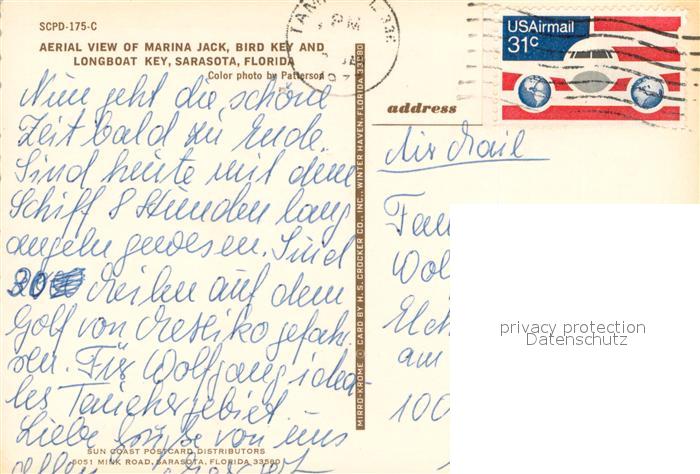 SCPD-175-C
AERIAL VIEW OF MARINA JACK, BIRD KEY AND
LONGBOAT KEY, SARASOTA, FLORIDA
Color photo by Patterson
Nun geht die schöne
Zeit bald zu Ende.
Sind heute mit dem
Schiff 8 Stunden lang
angeln gewesen. Sind
30 Meilen auf dem
Golf von Mexiko gefah-
ren. Für Wolfgang idea-
les Tauchergebiet
Liebe Grüße von uns
allen
SUN COAST POSTCARD DISTRIBUTORS
5051 MINK ROAD, SARASOTA, FLORIDA 33580
MIRRO-KROME ® CARD BY H. S. CROCKER CO., INC., WINTER HAVEN, FLORIDA 33880
TAM
PM
USAirmail
31c
address
Air Mail
Fam
Wol
Elch
am
100
privacy protection
Datenschutz